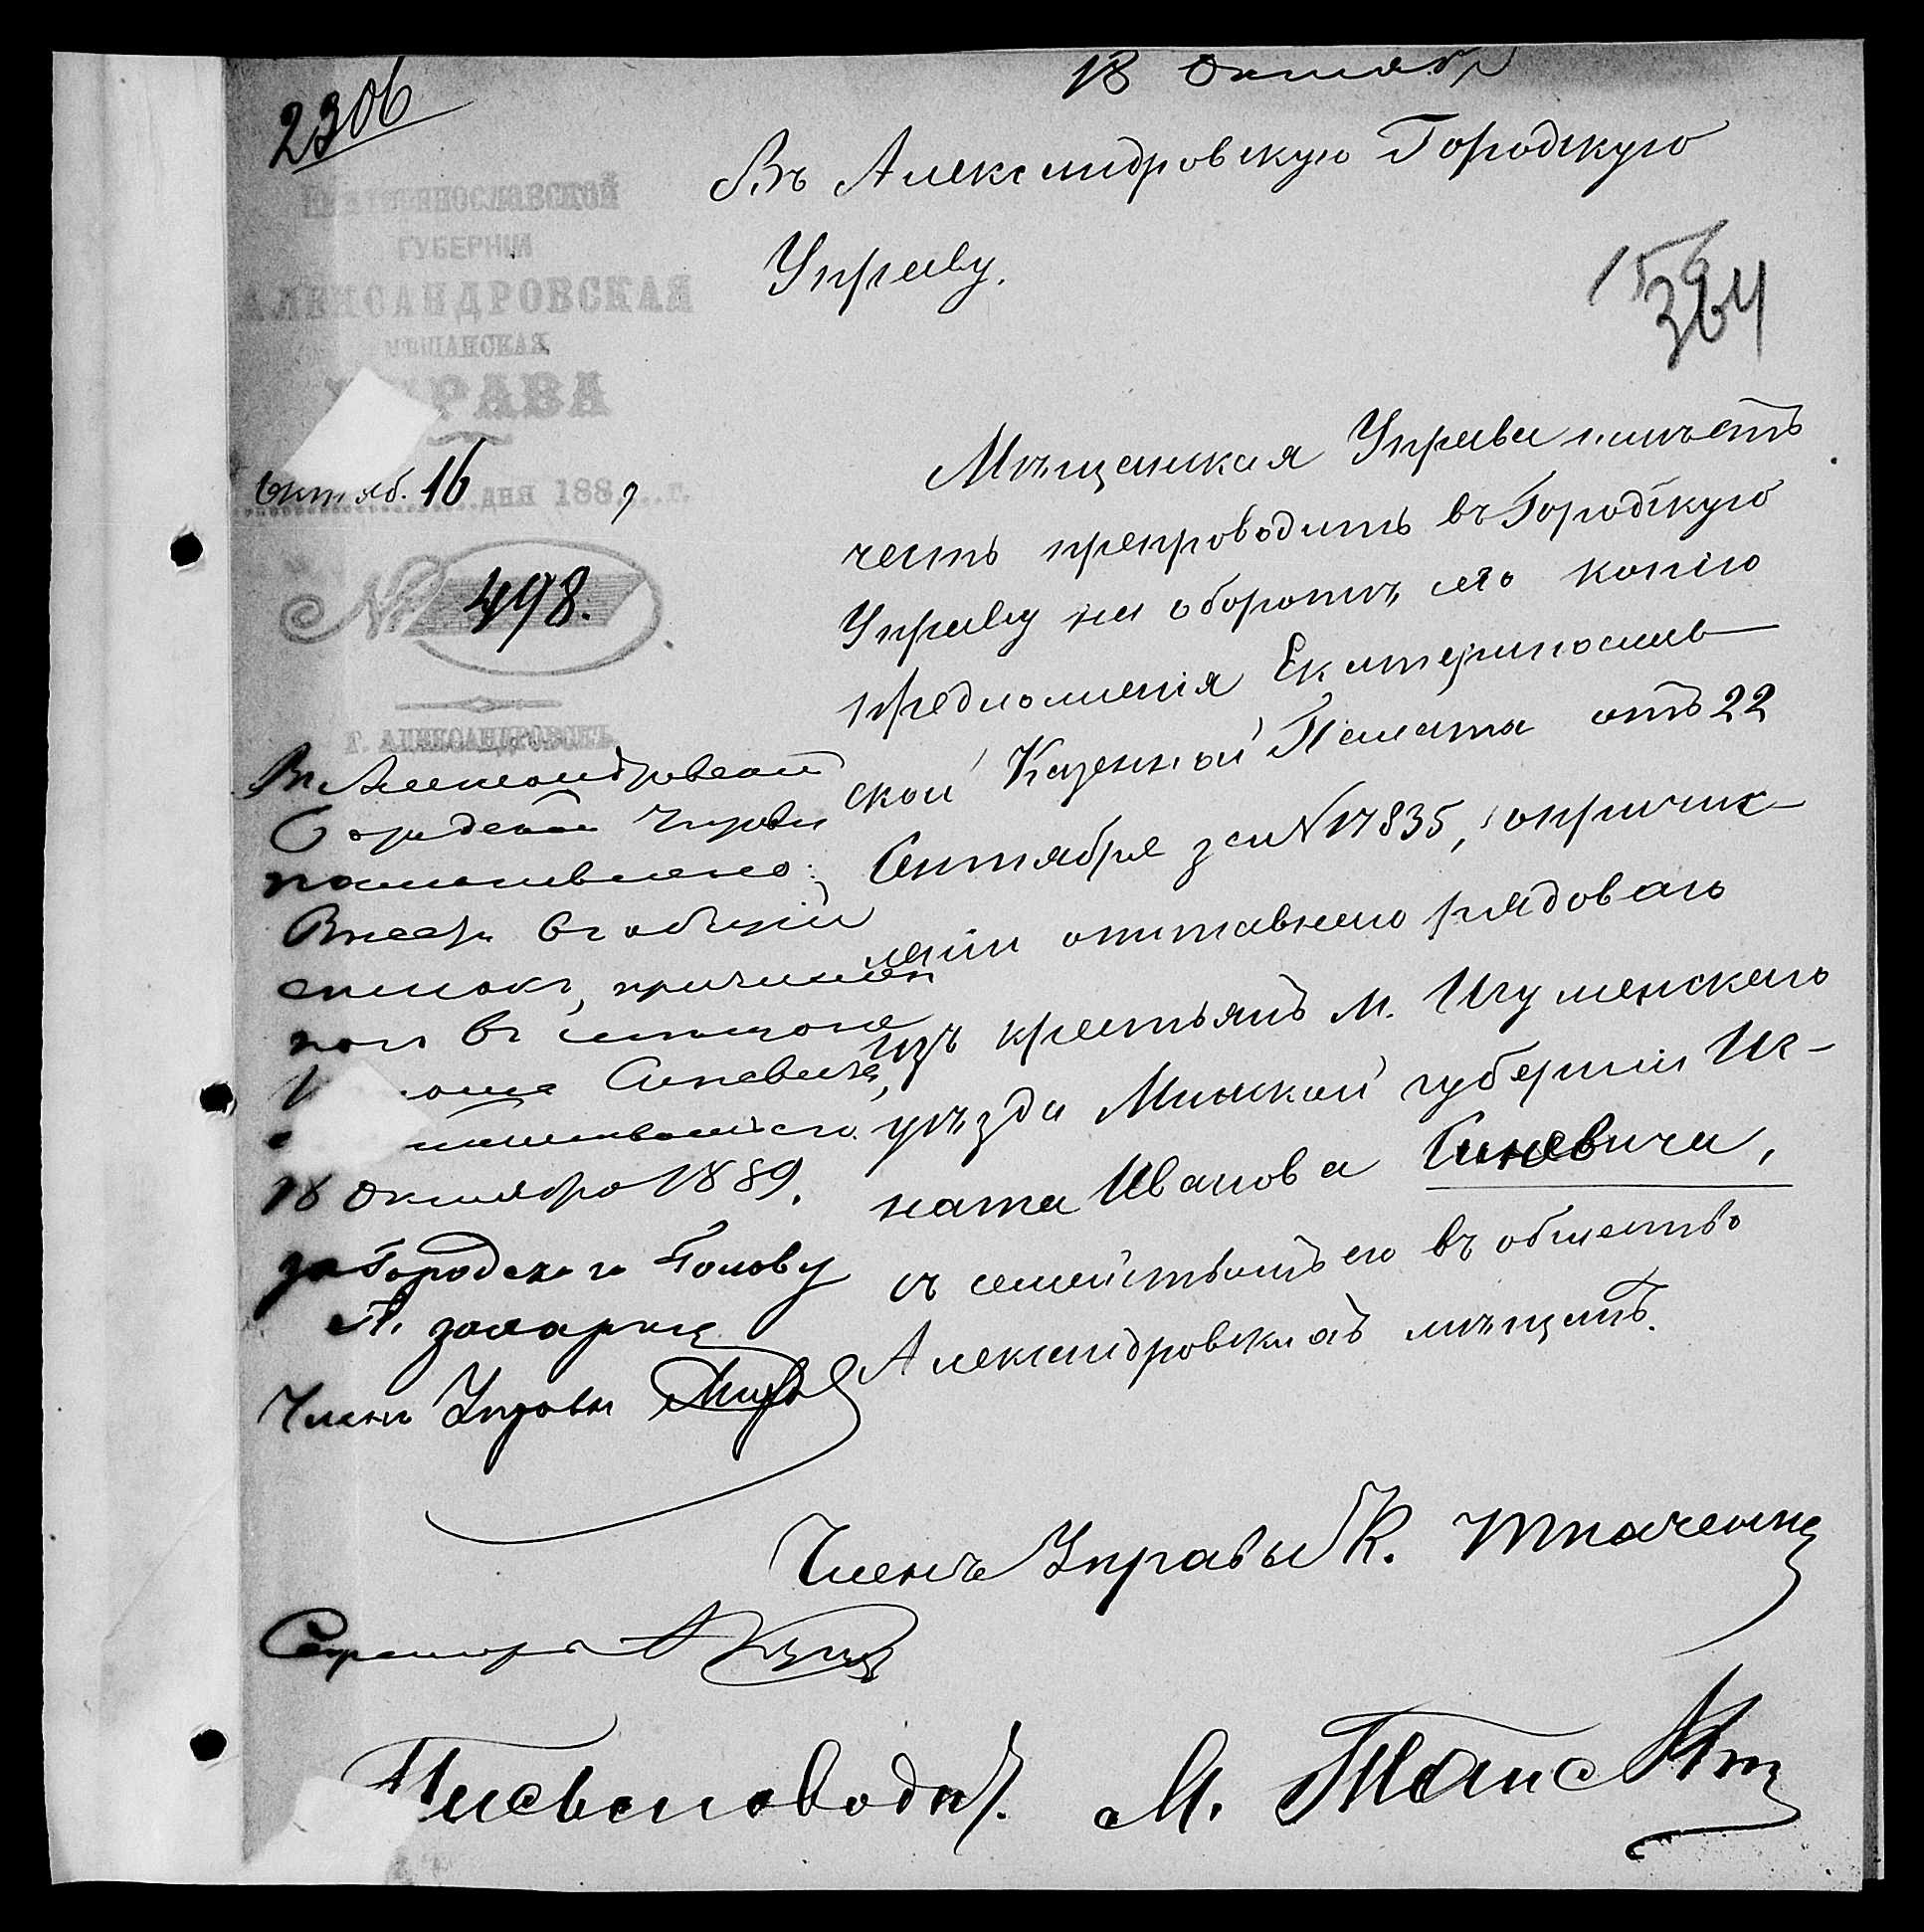 2306
18 Октябр
Въ Александровскую Городскую
Управу.
364
ЕКАТЕРИНОСЛАВСКОЙ
ГУБЕРНІИ
АЛЕКСАНДРОВСКАЯ
МѢЩАНСКАЯ
УПРАВА
Октяб. 16 дня 1889 г.
№ 498.
Г. АЛЕКСАНДРОВСКЪ.
Мѣщанская Управа имѣетъ
честь препроводить въ Городскую
Управу на оборотѣ сего копію
предложенія Екатеринослав-
ской Казенной Палаты отъ 22
Сентября за № 17835, о причис-
леніи отставного рядоваго
изъ крестьянъ М. Игуменскаго
уѣзда Минской губерніи Иг-
ната Иванова Синевича,
съ семействомъ его въ общество
Александровскихъ мѣщанъ.
Въ Александровской
Городской Управѣ
постановлено:
Внести въ общій
списокъ, причислен
Синевича,
18 октября 1889.
За Городского Голову
Членъ Управы
Членъ Управы К. Ткаченко
Секретарь
Письмоводит.
М.